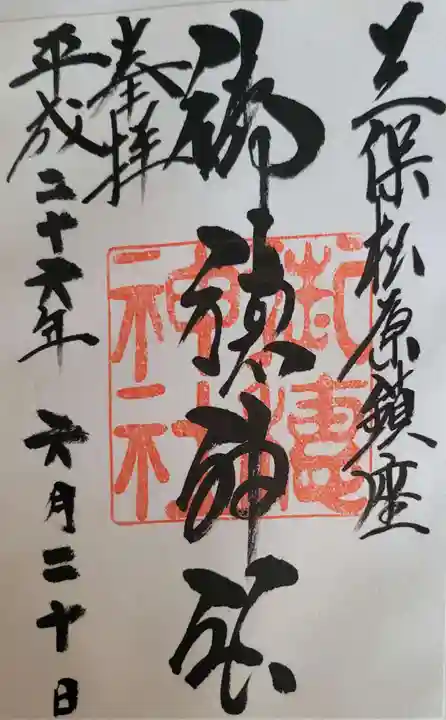 三保松原鎮座
御穂神社
御穂
神社
奉拝
平成二十六年 六月二十日